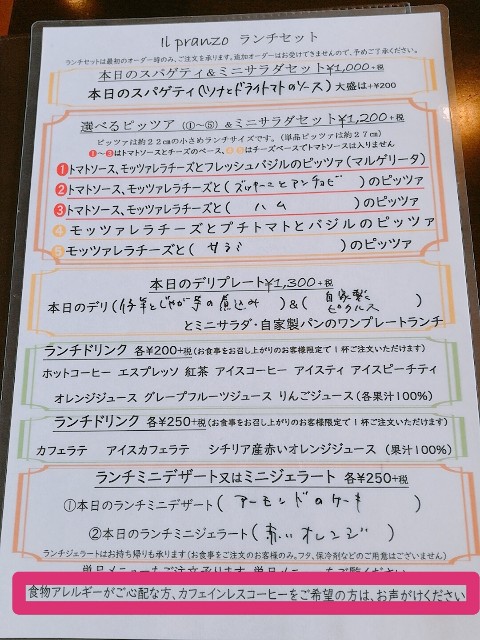 Il pranzo ランチセット
ランチセットは最初のオーダー時のみ、ご注文を承ります。追加オーダーはお受けできませんので、予めご了承ください。
本日のスパゲティ&ミニサラダセット¥1,000+税
本日のスパゲティ(ツナとドライトマトのソース)大盛は+¥200
選べるピッツァ(①~⑤)&ミニサラダセット¥1,200+税
ピッツァは約22cmの小さめランチサイズです。(単品ピッツァは約27cm)
①~③はトマトソースとチーズのベース、④⑤はチーズベースでトマトソースは入りません
①トマトソース、モッツァレラチーズとフレッシュバジルのピッツァ(マルゲリータ)
②トマトソース、モッツァレラチーズと(ズッキーニとアンチョビ)のピッツァ
③トマトソース、モッツァレラチーズと(ハム)のピッツァ
④モッツァレラチーズとプチトマトとバジルのピッツァ
⑤モッツァレラチーズと(サラミ)のピッツァ
本日のデリプレート¥1,300+税
本日のデリ(仔羊とじゃが芋の煮込み)&(自家製ピクルス)
とミニサラダ・自家製パンのワンプレートランチ
ランチドリンク 各¥200+税(お食事をお召し上がりのお客様限定で1杯ご注文いただけます)
ホットコーヒー エスプレッソ 紅茶 アイスコーヒー アイスティ アイスピーチティ
オレンジジュース グレープフルーツジュース りんごジュース(各果汁100%)
ランチドリンク 各¥250+税(お食事をお召し上がりのお客様限定で1杯ご注文いただけます)
カフェラテ アイスカフェラテ シチリア産赤いオレンジジュース (果汁100%)
ランチミニデザート又はミニジェラート 各¥250+税
①本日のランチミニデザート(アーモンドのケーキ)
②本日のランチミニジェラート(赤いオレンジ)
ランチジェラートはお持ち帰りも承ります(お食事をご注文のお客様のみ。フタ、保冷剤などのご用意はございません)
単品メニューもご注文承ります。単品メニューもご覧ください
食物アレルギーがご心配な方、カフェインレスコーヒーをご希望の方は、お声がけください